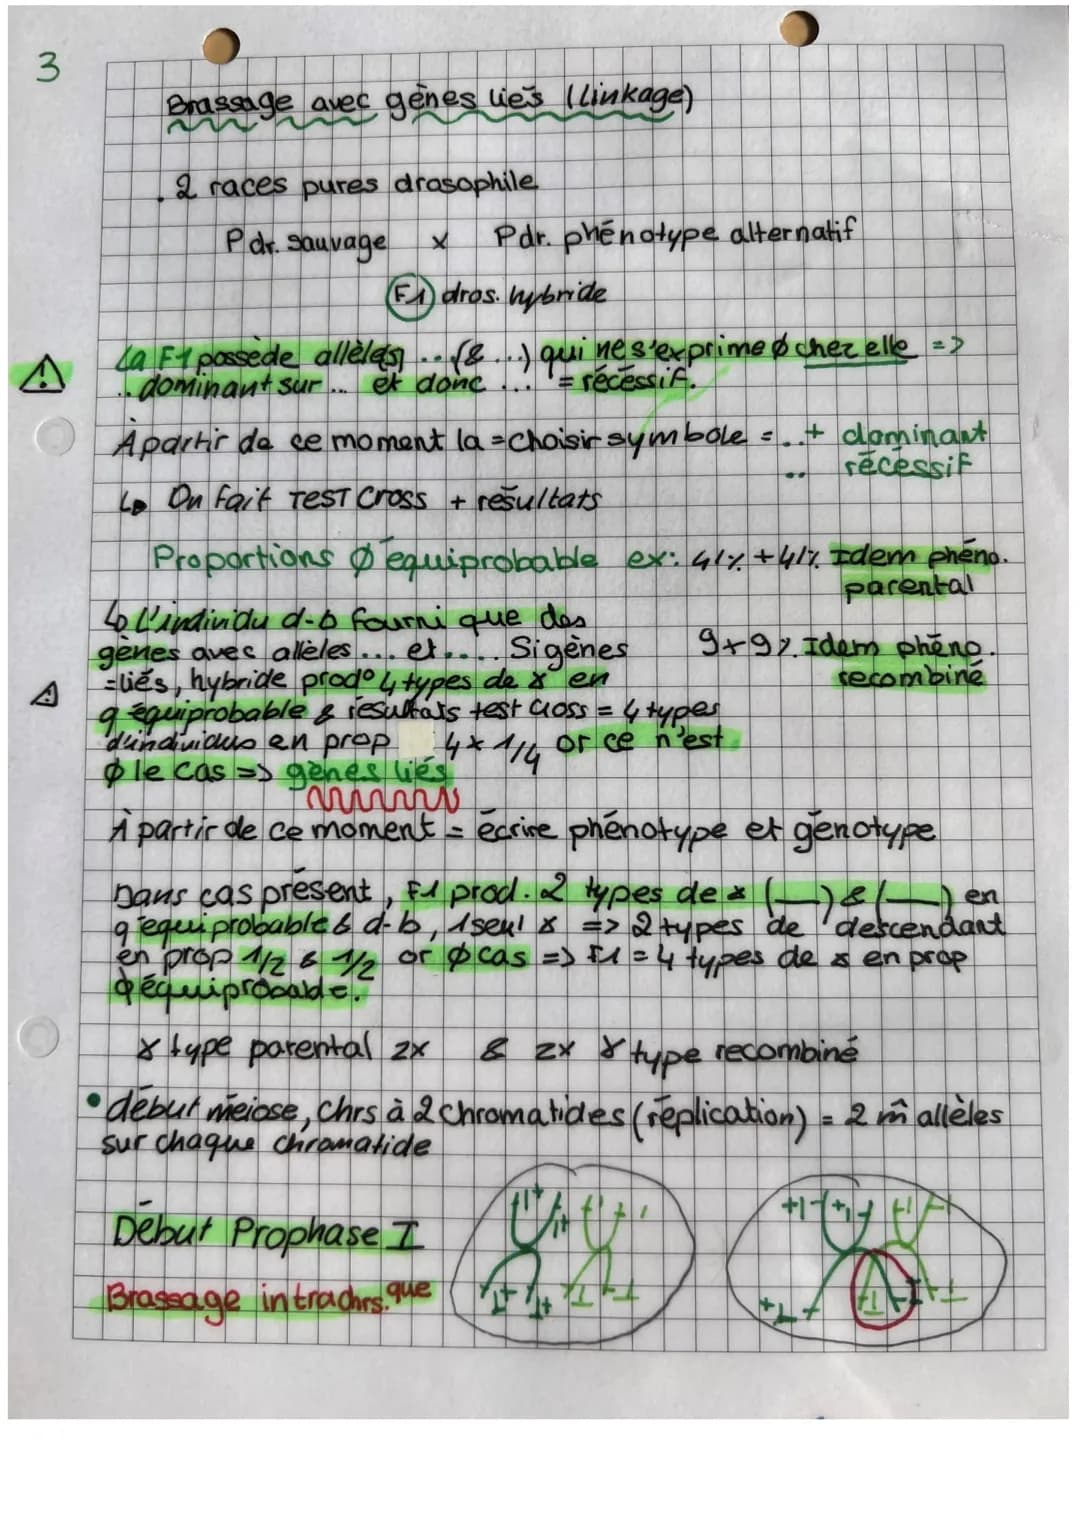 3
Brassage avec gènes liés (linkage)
. 2 races pures drosophile
P dr. sauvage x P dr. phénotype alternatif
F1 dros. hybride
La F1 possède allèle(s) ... (& ...) qui ne s'exprime Ø chez elle =>
... dominant sur ... et donc ... = récéssif.
À partir de ce moment la = choisir symbole = ..+ dominant
.. récéssif
↳ On fait TEST Cross + résultats
Proportions Ø équiprobable ex: 41% + 41% Idem phéno.
parental
↳ L'individu d-b fourni que des
gènes avec allèles ... et .... Si gènes 9+9% Idem phéno.
= liés, hybride prod° 4 types de γ en recombiné
q équiprobable & résultats test cross = 4 types
d'individus en prop 4 x 1/4 or ce n'est
Ø le cas => gènes liés
À partir de ce moment = écrire phénotype et génotype
Dans cas présent, F1 prod. 2 types de γ (__) & (__) en
q équiprobable & d-b, 1 seul γ => 2 types de descendant
en prop 1/2 & 1/2 or Ø cas => F1 = 4 types de γ en prop
Ø équiprobable.
γ type parental 2x & 2x γ type recombiné
• début meiose, chrs à 2 chromatides (réplication) = 2 m̂ allèles
sur chaque chromatide
Début Prophase I
Brassage intrachrs.que